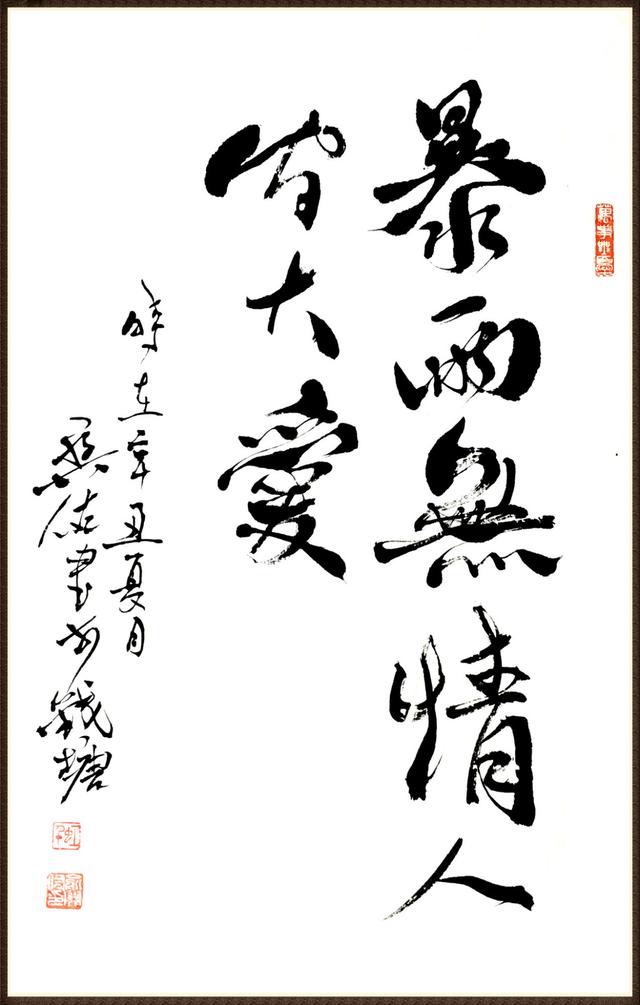 暴雨無情人
間大愛
時在辛丑夏月
書於錢塘